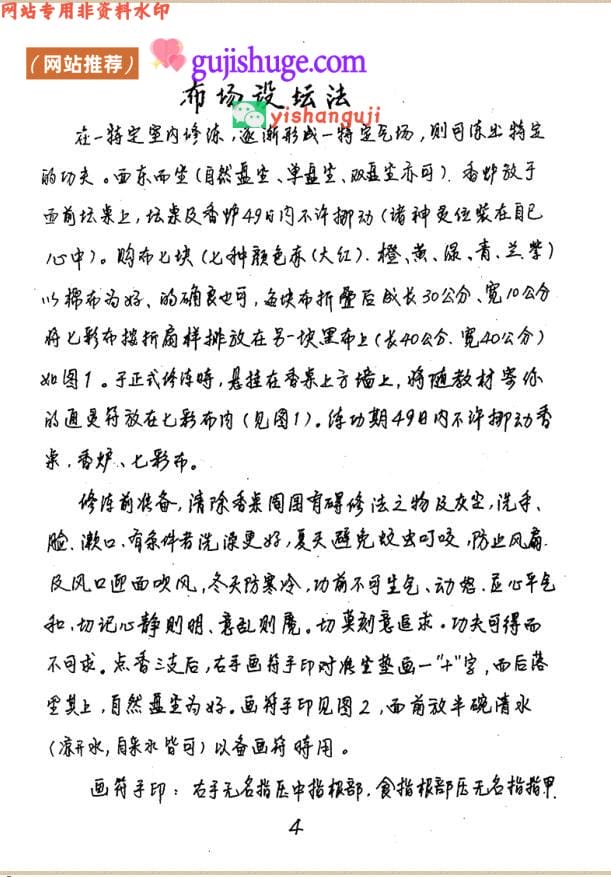 网站专用非资料水印
（网站推荐）
gujishuge.com
布场设坛法
yishanguji
在一特定室内修炼，逐渐形成一特定气场，则可炼出特定
的功夫。面东而坐（自然盘坐、单盘坐、双盘坐亦可）．香炉放于
面前坛桌上，坛桌及香炉49日内不许挪动（诸神灵位装在自己
心中）。购布七块（七种颜色赤（大红）．橙、黄、绿、青、兰、紫）
以棉布为好、的确良也可，每块布折叠后成长30公分、宽10公分
将七彩布按折扇样排放在另一块黑布上（长40公分．宽40公分）
如图1。于正式修炼时，悬挂在香桌上方墙上，将随教材寄你
的通灵符放在七彩布内（见图1）。炼功期49日内不许挪动香
桌．香炉、七彩布。
修炼前准备，清除香桌周围有碍修法之物及灰尘，洗手、
脸．漱口．有条件者洗澡更好，夏天避免蚊虫叮咬，防止风扇
及风口迎面吹风，冬天防寒冷，功前不可生气、动怒．应心平气
和．切记心静则明、意乱则魔。切莫刻意追求．功夫可得而
不可求。点香三支后，右手画符手印对准坐垫画一"十"字，而后落
坐其上，自然盘坐为好。画符手印见图2，面前放半碗清水
（凉开水，自来水皆可）以备画符时用。
画符手印：右手无名指压中指根部．食指根部压无名指指甲．
4